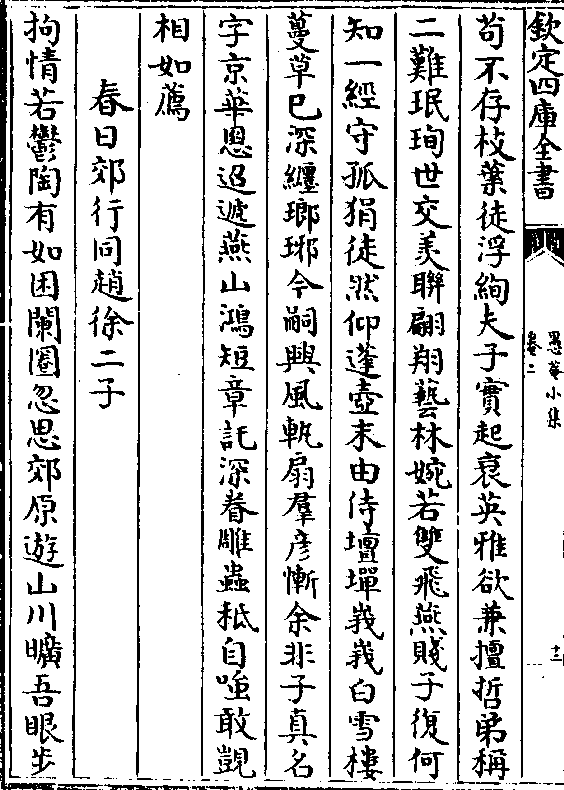 欽定四庫全書
愚菴小集
卷二
十三
苟不存枝葉徒浮絢夫子實起衰英雅欲兼擅哲弟稱
二難珉珣世交羡聨翩翔藝林婉若雙飛燕賤子復何
知一經守孤狷徒然仰蓬壺末由侍壇墠峩峩白雪樓
蔓草已深纒瑯琊今嗣興風軌扇羣彦慚余非子真名
字京華恩迢遞燕山鴻短章託深眷雕蟲秪自嗤敢覬
相如薦
春日郊行同趙徐二子
拘情若鬱陶有如困闌圈忽思郊原遊山川曠吾眼步